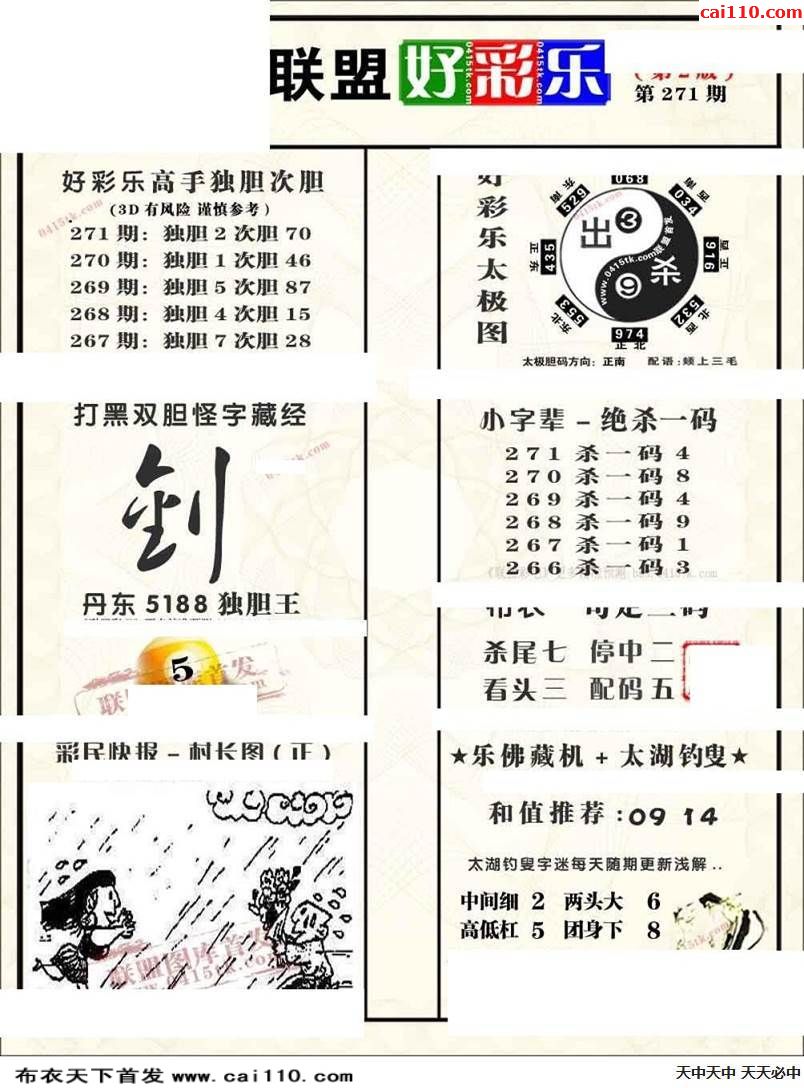 cai110.com
联盟 好彩乐
第 271 期
好彩乐高手独胆次胆
(3D有风险 谨慎参考)
271 期: 独胆 2 次胆 70
270 期: 独胆 1 次胆 46
269 期: 独胆 5 次胆 87
268 期: 独胆 4 次胆 15
267 期: 独胆 7 次胆 28
好彩乐太极图
068
东南 529
西南 034
正东 435
正西 916
东北 553
西北 532
974
正北
出 3
9 杀
www.0415tk.com联盟首发
太极胆码方向: 正南 配语: 颊上三毛
打黑双胆怪字藏经
丹东 5188 独胆王
5
联盟图库首发
小字辈 - 绝杀一码
271 杀一码 4
270 杀一码 8
269 杀一码 4
268 杀一码 9
267 杀一码 1
266 杀一码 3
杀尾七 停中二
看头三 配码五
彩民快报 - 村长图 (正)
联盟图库首发
www.0415tk.com
★乐佛藏机 + 太湖钓叟★
和值推荐 : 09 14
太湖钓叟字迷每天随期更新浅解 ..
中间细 2 两头大 6
高低杠 5 团身下 8
布衣天下首发 www.cai110.com
天中天中 天天必中